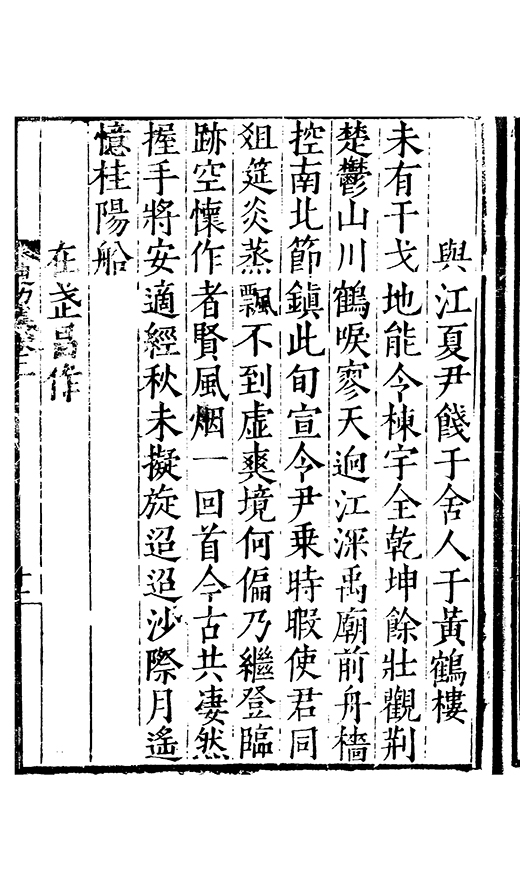 與江夏尹餞于舍人于黃鶴樓
未有干戈地能令棟宇全乾坤餘壯觀荆
楚鬱山川鶴唳寥天逈江深禹廟前舟檣
控南北節鎮此旬宣令尹乗時暇使君同
爼筵炎蒸飄不到虛爽境何偏乃繼登臨
跡空懷作者賢風烟一回首今古共凄然
握手將安適經秋未擬旋迢迢沙際月遙
憶桂陽船
在武昌作